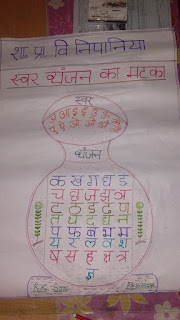 शा. प्रा. वि निपानिया
स्वर व्यंजन का मटका
स्वर
अ आ इ ई उ ऊ
ए ऐ ओ औ अं अः
व्यंजन
क ख ग घ ङ
च छ ज झ ञ
ट ठ ड ढ ण
त थ द ध न
प फ ब भ म
य र ल व श
ष स ह क्ष त्र
ज्ञ